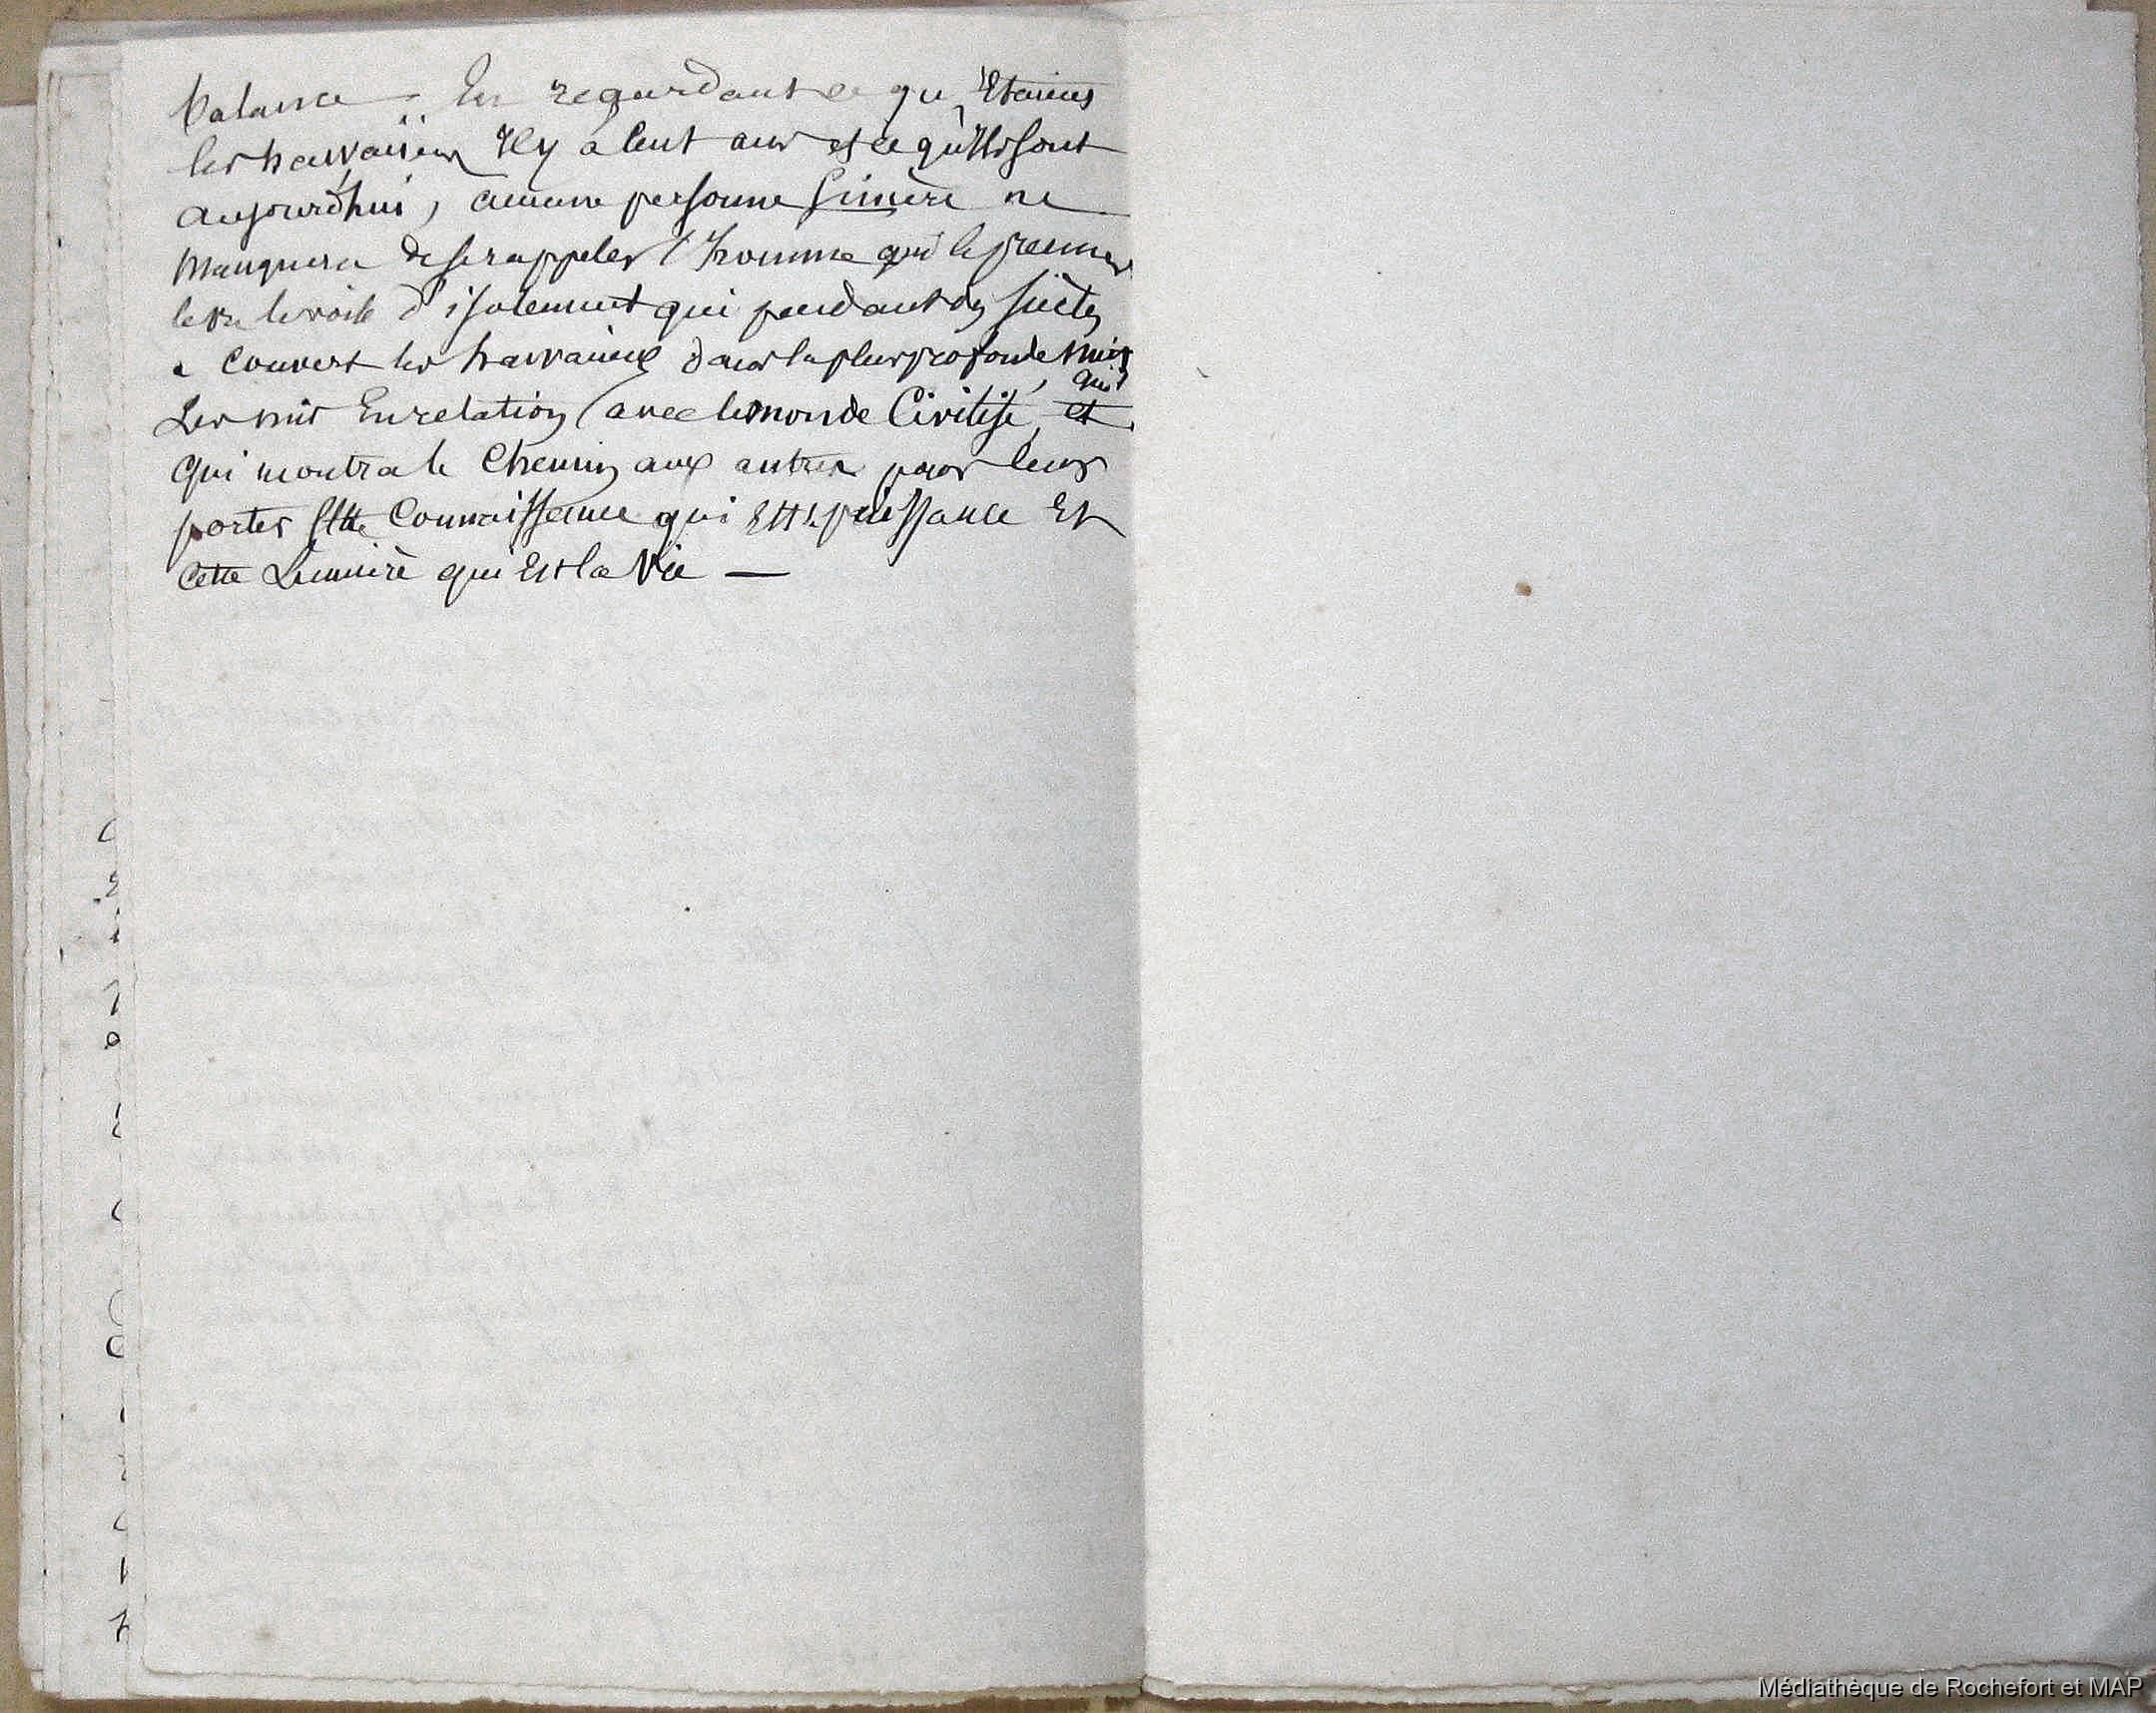 balance — En regardant ce qu'Etaient
les hawaïien Il y a Cent ans et ce qu'Ils sont
aujourd'hui, aucune personne Sincère ne
Manquera de se rappeler l'homme qui le premier
leva le voile d'isolement qui pendant des siècles
a couvert les hawaiiens dans la plus profonde nuit
qui
Les mit En relation avec le monde Civilisé, et
qui montra le Chemin aux autres pour leur
porter Cette Connaissance qui Est la puissance Et
Cette Lumière qui Est la Vie —
Médiathèque de Rochefort et MAP